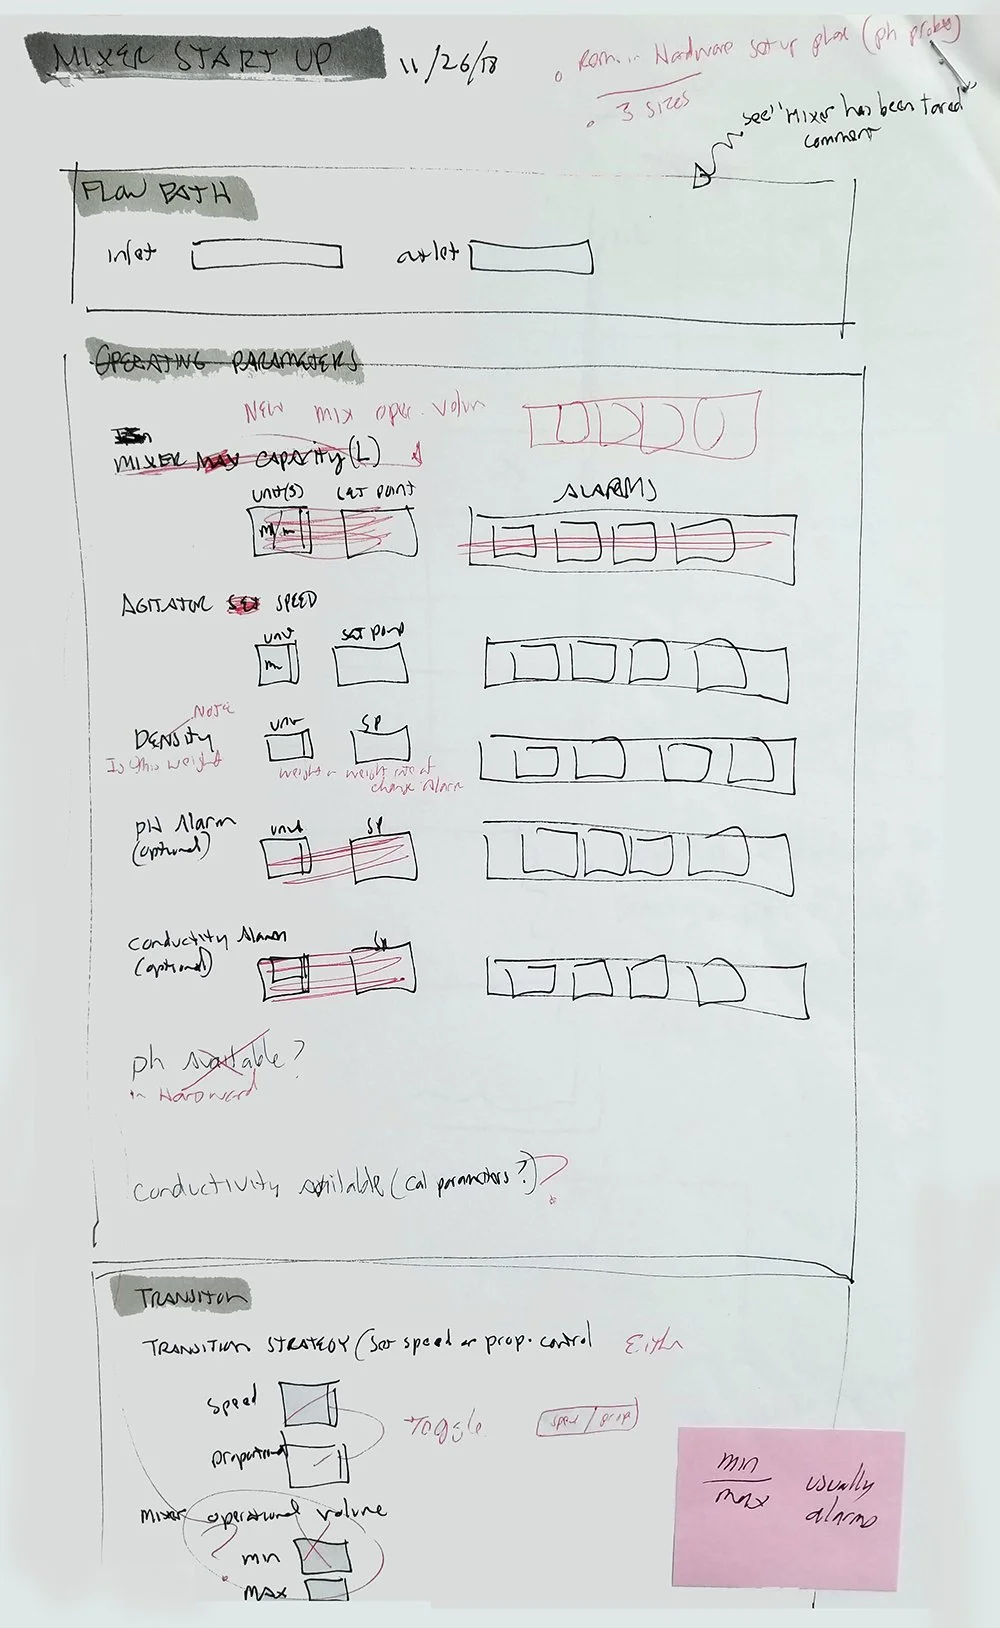 MIXER START UP 11/26/18
Hardware setup phase (ph probes)
3 sizes
see "Mixer has been tared"
comment
FLOW PATH
inlet outlet
OPERATING PARAMETERS
NEW mix oper. Volum
MIXER MAX CAPACITY (L)
UNIT(S) SET POINT ALARMS
AGITATOR SET SPEED
unit set point
NOTE
DENSITY unit SP
Is this weight
weight or weight rate of
change Alarm
pH Alarm unit SP
(optional)
Conductity Alarm SP
(optional)
ph available?
in Hardward
Conductivity available (cal parameters?)?
TRANSITON
TRANSITION STRATEGY (Set speed or prop. control Eith
Speed
Toggle speed/prop
proportional
Mixer operational volume
? min
MAX
min usually
max alarms